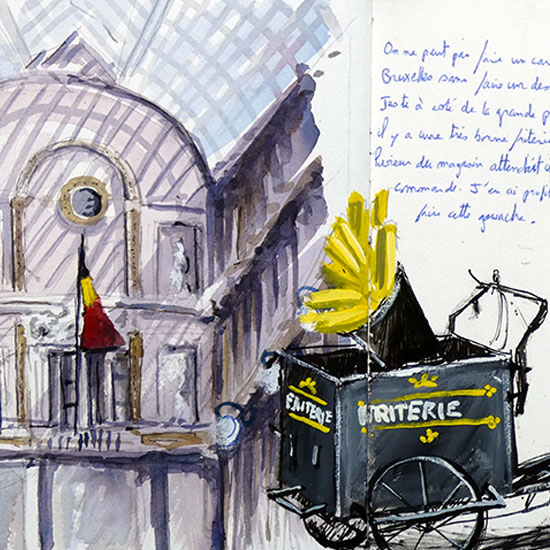 On ne peut pas faire un car
Bruxelles sans faire un des
Juste à coté de la grande p
il y a une très bonne friterie
du magasin attendait
commande. J'en ai prof
faire cette gouache.
FRITERIE FRITERIE